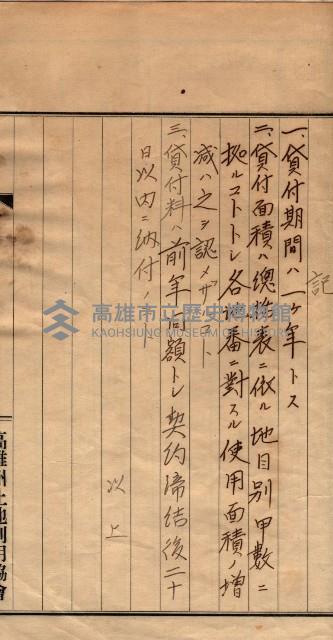 記
一、貸付期間ハ一ヶ年トス
二、貸付面積ハ總括表ニ依ル地目別甲數ニ
拠ルコトトシ各地番ニ對スル使用面積ノ增
減ハ之ヲ認メザルコト
三、貸付料ハ前年同額トシ契約締結後二十
日以内ニ納付ノコト
以上
高雄州土地利用協會
高雄市立歷史博物館
KAOHSIUNG MUSEUM OF HISTORY